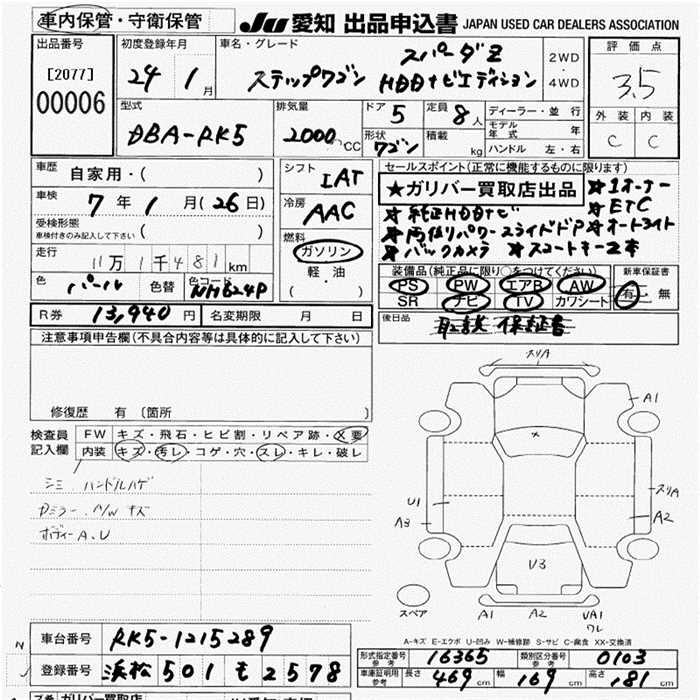 車内保管・守衛保管 JU 愛知 出品申込書 JAPAN USED CAR DEALERS ASSOCIATION
出品番号 初度登録年月 車名・グレード 評価点
[2077] 24 1月 ステップワゴン スパーダZ HDDナビエディション 2WD・4WD 3.5
00006 外装 内装
型式 排気量 ドア 5 定員 8人 ディーラー・並行
DBA-RK5 2000cc 形状 ワゴン 積載 kg モデル年式 年 C C
ハンドル 左・右
車歴 自家用・( ) シフト IAT セールスポイント(正常に機能するものに限ります)
★ガリバー買取店出品 ★1オーナー
車検 7年1月(26日) 冷房 AAC ★純正HDDナビ ★ETC
受検形態 車検付きのみ記入して下さい ( ) ★両側パワースライドドア ★オートライト
燃料 ガソリン 軽・油 ( ) ★バックカメラ ★スマートキー2本
走行 11万1千481km
装備品(純正品に限り○をつけてください) 新車保証書
色 パール 色替 色コード NH624P PS PW エアB AW 有・無
SR ナビ TV カワシート
R券 13,940円 名変期限 月 日 後日品 取説 保証書
注意事項申告欄(不具合内容等は具体的に記入して下さい)
修復歴 有 〔箇所 〕
検査員記入欄 FW キズ・飛石・ヒビ割・リペア跡・X要
内装 キズ・汚レ・コゲ・穴・スレ・キレ・破レ
シミ ハンドルハゲ
Dミラー、A/W キズ
ボディーA.U
スリA
A1
U1 スリA
A3 A2
V3
スペア A1 A2 UA1
ワレ
A-キズ E-エクボ U-凹み W-補修跡 S-サビ C-腐食 XX-交換済
車台番号 RK5-1215289
形式指定番号 参考 16365 類別区分番号 参考 0103
登録番号 浜松 501 も 2578
車庫証明用 参考 長さ 469cm 幅 169cm 高さ 181cm